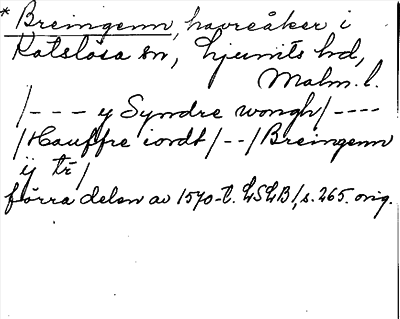 * Breingenn, havreåker i
Katslösa sn, Ljunits hd,
Malm. l.
/- - - y Syndre wongh/ - - - -
/Hauffre iordt/ - - /Breingenn
ij tr/
förra delen av 1570-t. LSLB/, s. 265. orig.